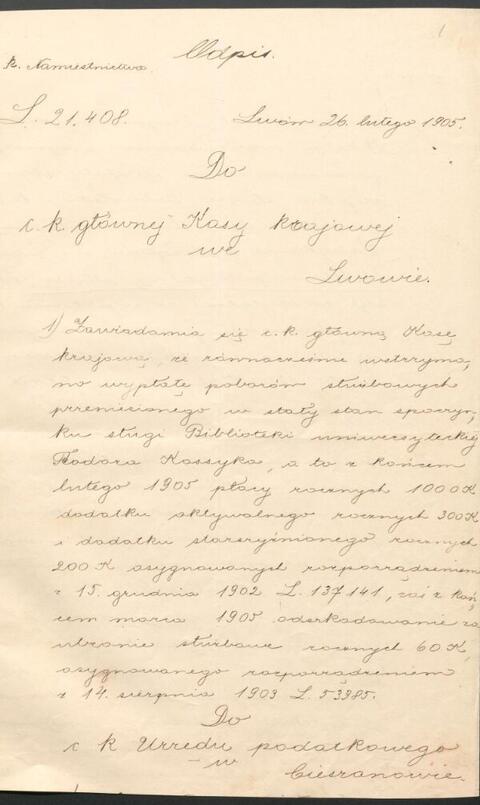 1
Odpis.
k. Namiestnictwo
L. 21.408.
Lwów 26. lutego 1905.
Do
c. k. głównej Kasy krajowej
we
Lwowie.
1) Zawiadamia się c. k. główną Kasę
krajową, że równocześnie wstrzyma,
no wypłatę poborów służbowych
przeniesionego w stały stan spoczyn,
ku sługi Biblioteki uniwersyteckiej
Teodora Kossyka, a to z końcem
lutego 1905 płacy rocznych 1000 K
dodatku aktywalnego rocznych 300 K
i dodatku starszyźnianego rocznych
200 K asygnowanych rozporządzeniem
z 15. grudnia 1902 L. 137141, zaś z koń,
cem marca 1905 odszkodowanie za
ubranie służbowe rocznych 60 K,
asygnowanego rozporządzeniem
z 14. sierpnia 1903 L. 53985.
Do
c k Urzędu podatkowego
w
Cieszanowie.